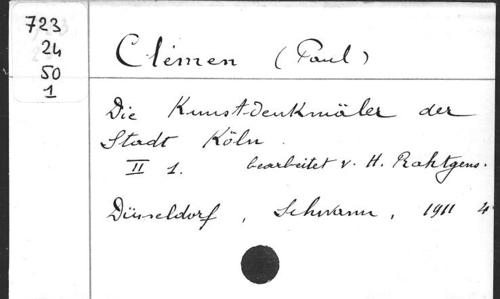 723
24
50
1
Clémen (Paul)
Die Kunstdenkmäler der
Stadt Köln.
II 1. bearbeitet v. H. Rahtgens.
Düsseldorf, Schwann, 1911 4